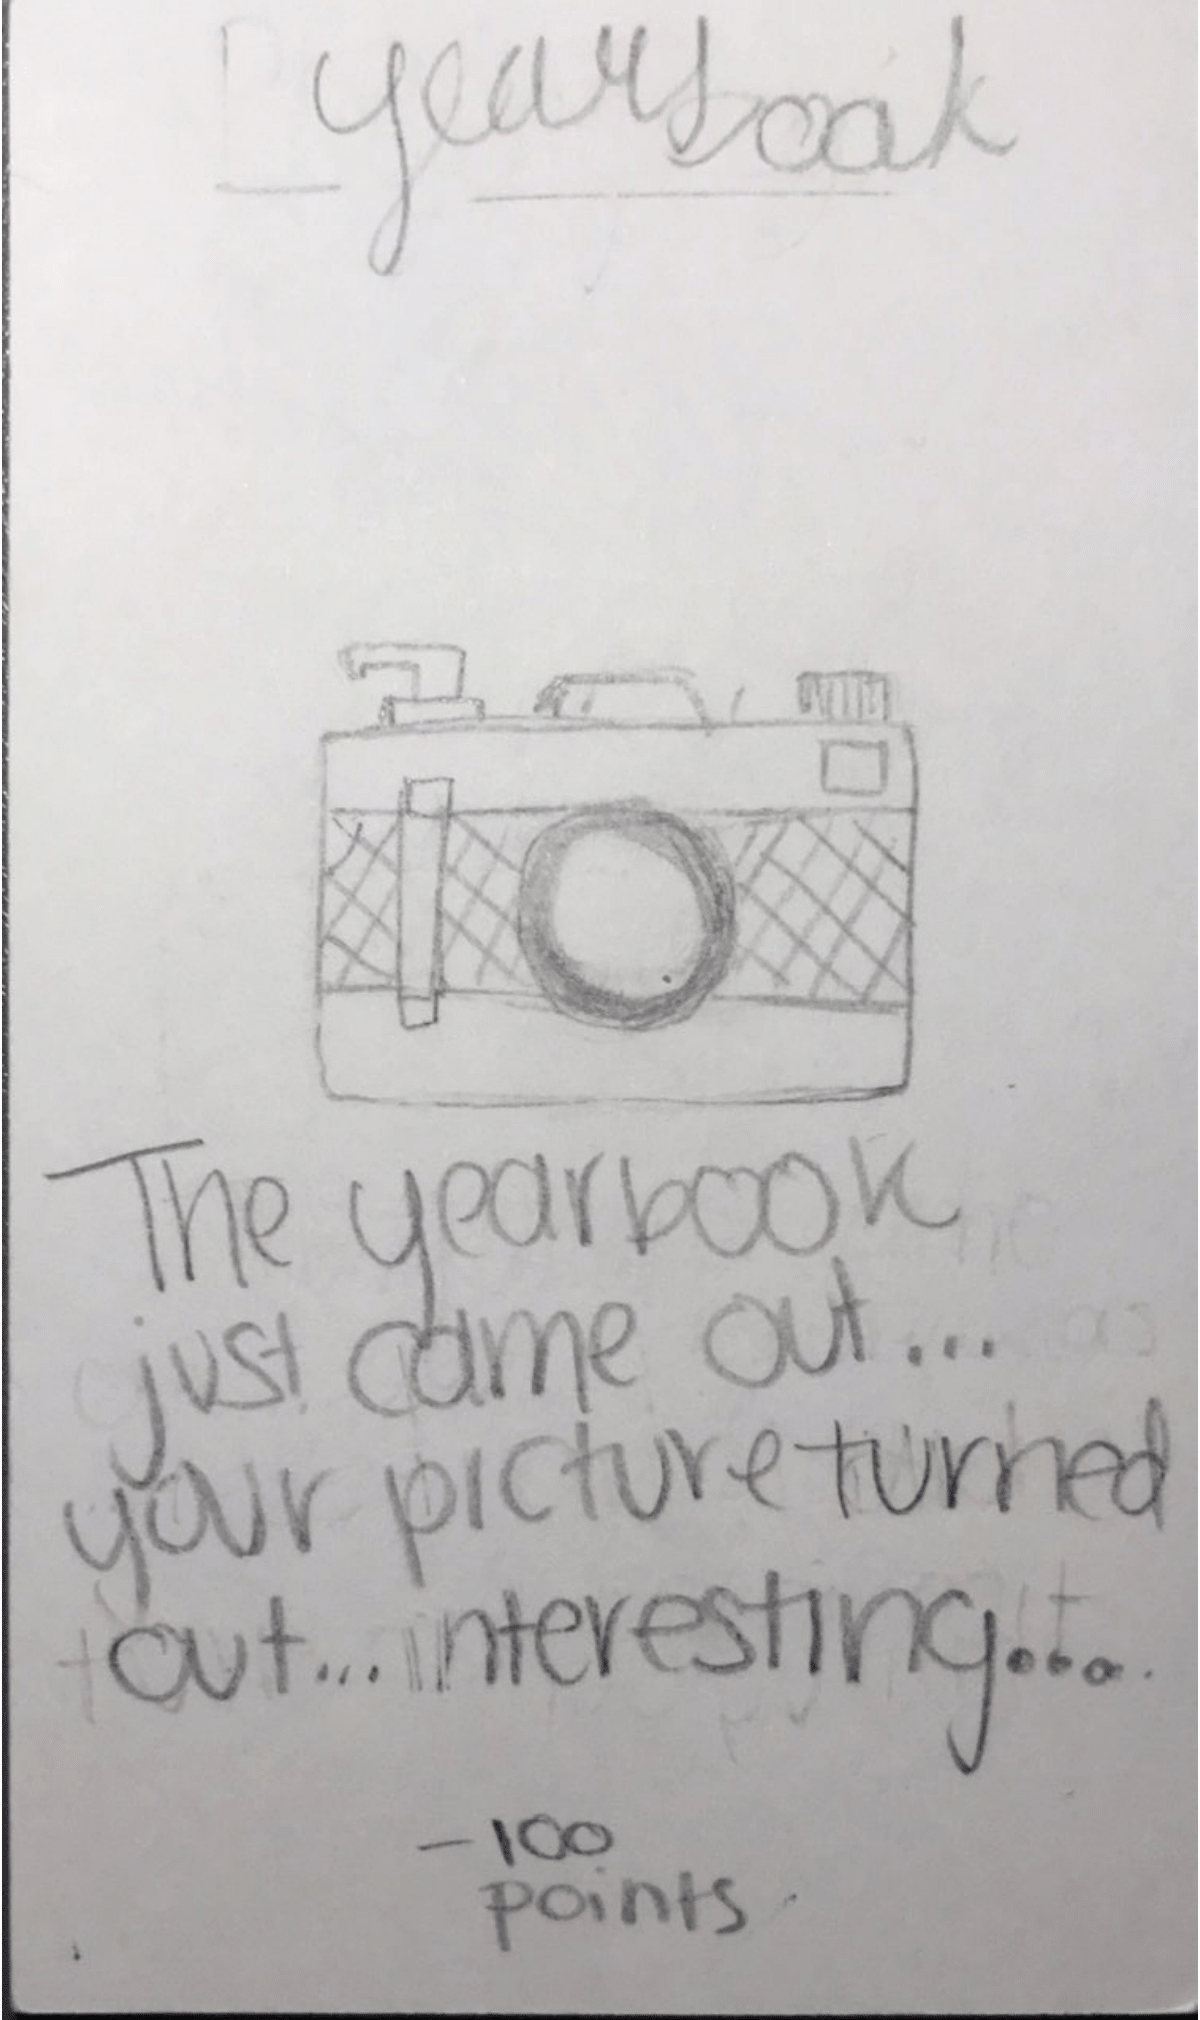 yearbook
The yearbook
just came out...
your picture turned
out... interesting....
-100
points